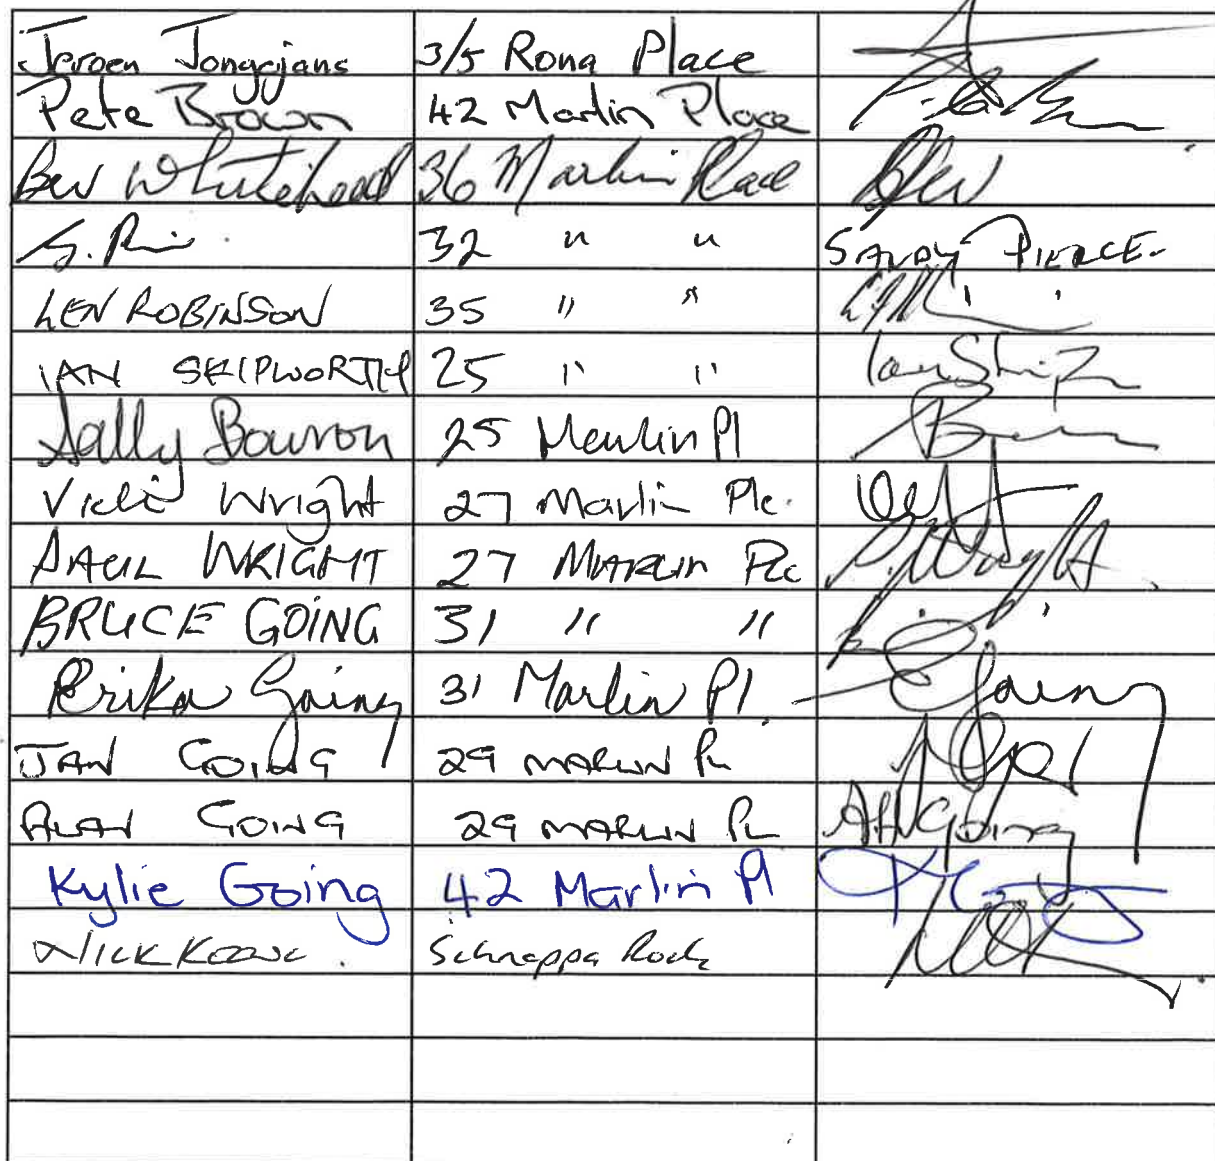 Jeroen Jongejans 3/5 Rona Place
Pete Brown 42 Marlin Place
Bev Whitehead 36 Marlin Place Bev
32 " " SANDY PIERCE.
LEN ROBINSON 35 " "
IAN SKIPWORTH 25 " " Ian
Sally Bowron 25 Marlin Pl
Vicki Wright 27 Marlin Plc.
PAUL WRIGHT 27 MARLIN PLC P. Wright
BRUCE GOING 31 " "
Erika Going 31 Marlin Pl. E Going
JAN GOING 29 MARLIN PL
ALAN GOING 29 MARLIN PL Going
Kylie Going 42 Marlin Pl
NICK Schnappa Rock